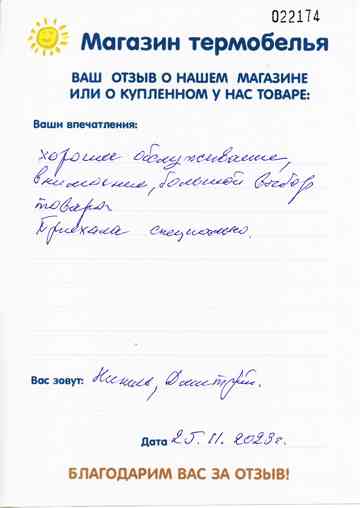 022174
Магазин термобелья
ВАШ ОТЗЫВ О НАШЕМ МАГАЗИНЕ
ИЛИ О КУПЛЕННОМ У НАС ТОВАРЕ:
Ваши впечатления:
хорошее обслуживание,
внимание, большой выбор
товара
Приехала специально.
Вас зовут: Нинель, Дмитрий.
Дата 25.11.2023г.
БЛАГОДАРИМ ВАС ЗА ОТЗЫВ!